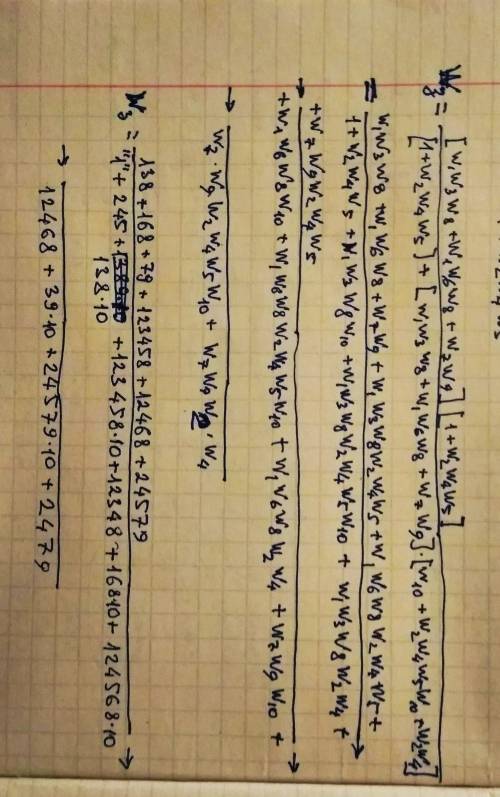 W₃ = [W₁W₃W₈ + W₁W₆W₈ + W₇W₉] [1 + W₂W₄W₅]
[1 + W₂W₄W₅] + [W₁W₃W₈ + W₁W₆W₈ + W₇W₉] · [W₁₀ + W₂W₄W₅W₁₀ + W₂W₄]
= W₁W₃W₈ + W₁W₆W₈ + W₇W₉ + W₁W₃W₈W₂W₄W₅ + W₁W₆W₈W₂W₄W₅ +
1 + W₂W₄W₅ + W₁W₃W₈W₁₀ + W₁W₃W₈W₂W₄W₅W₁₀ + W₁W₃W₈W₂W₄ +
+ W₇W₉W₂W₄W₅
+ W₁W₆W₈W₁₀ + W₁W₆W₈W₂W₄W₅W₁₀ + W₁W₆W₈W₂W₄ + W₇W₉W₁₀ +
W₇ · W₉W₂W₄W₅W₁₀ + W₇W₉W₂ · W₄
138 + 168 + 79 + 123458 + 12468 + 24579
W₃ = "1" + 245 + 138·10 + 123458·10 + 12348 + 168·10 + 124568·10
12468 + 79·10 + 24579·10 + 2479